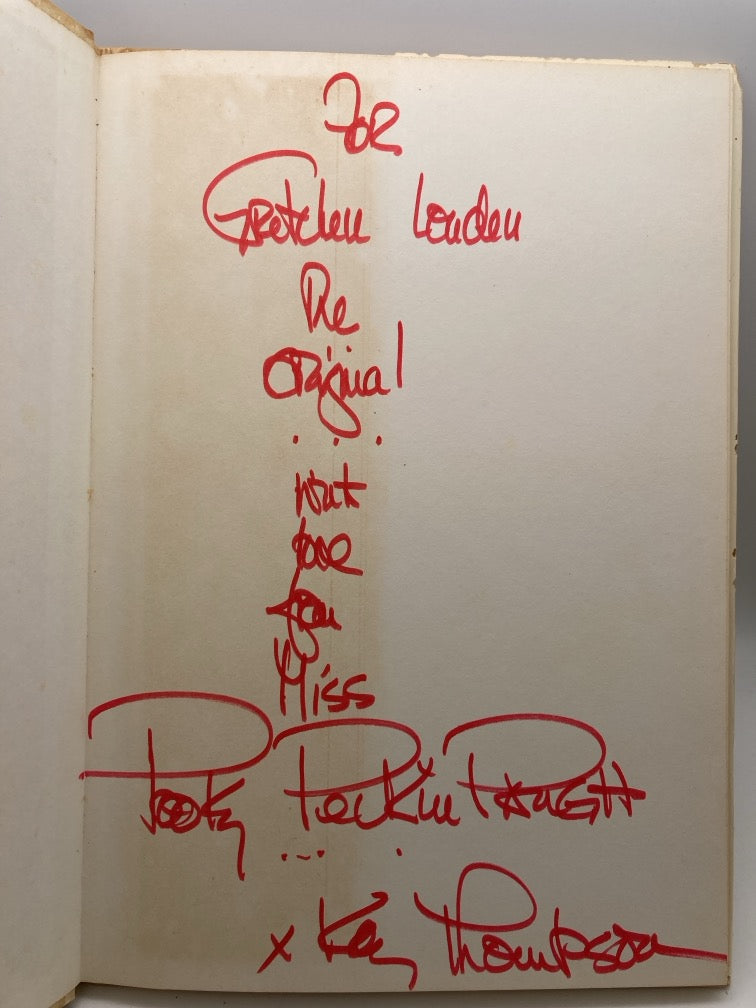 FOR
Gretchen Louden
The
Original
. . .
love
you
Miss
Pooky Peckinpaugh
... .
x Kay Thompson